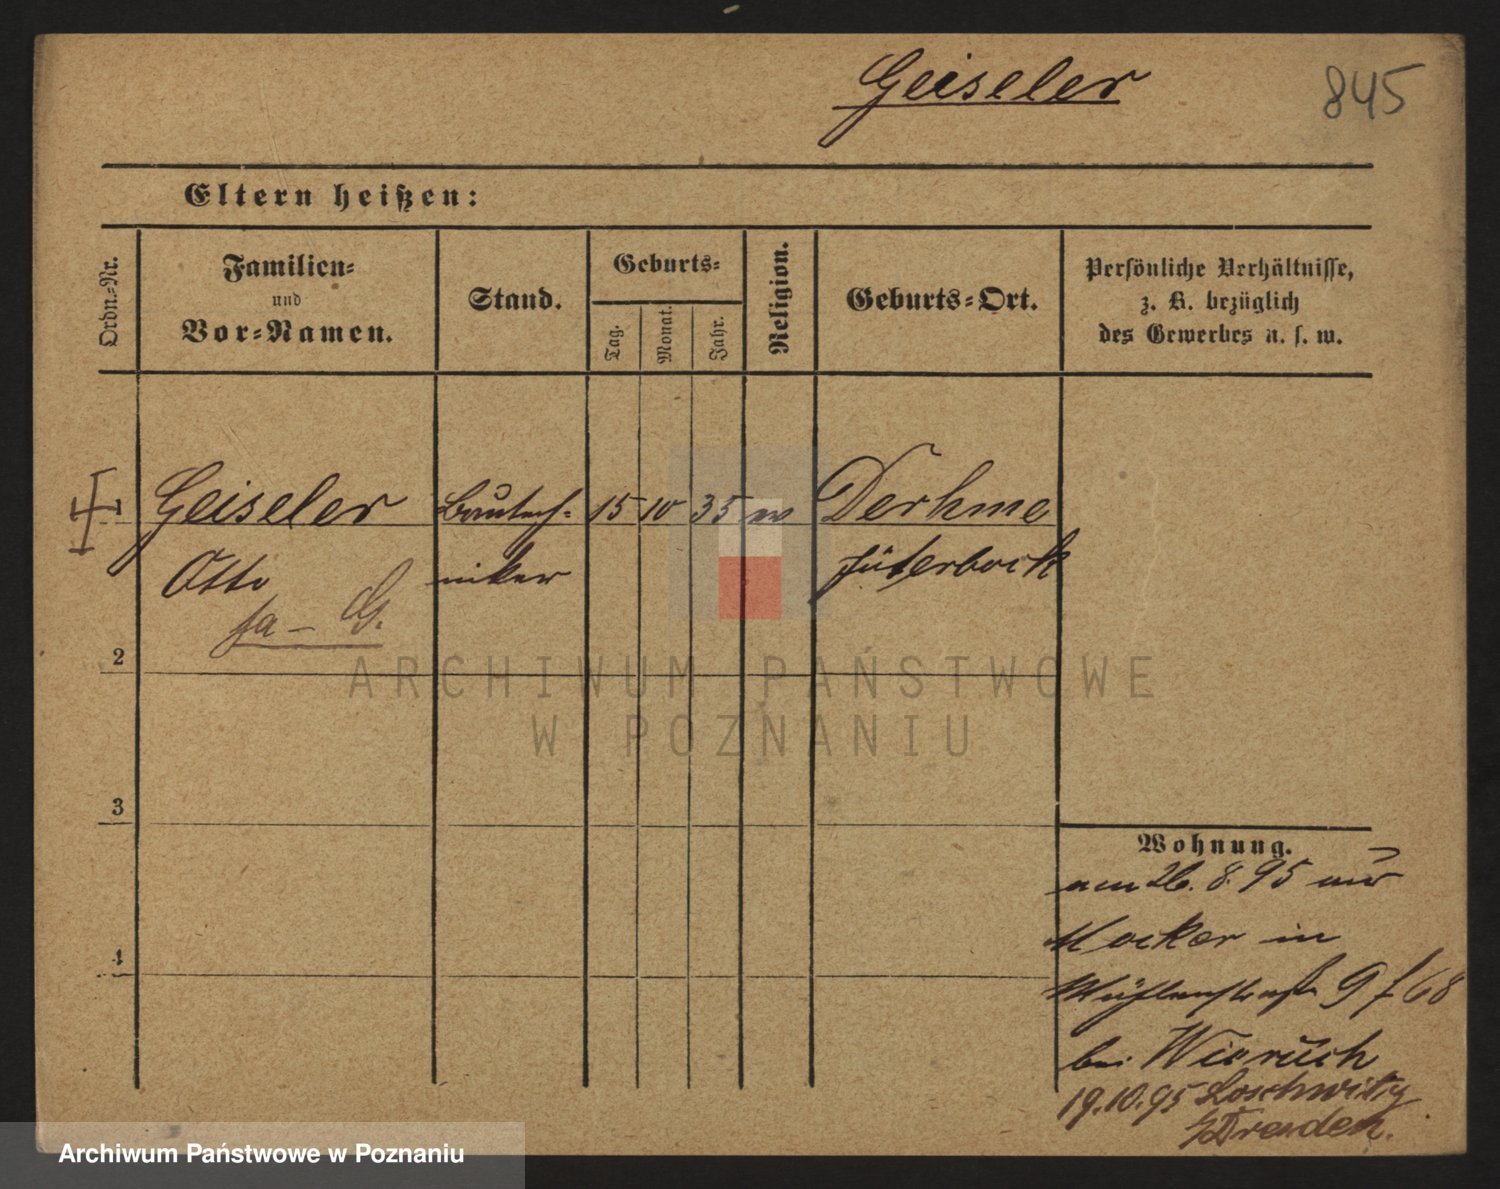 Geiseler
845
Eltern heißen:
Ordn.-Nr.
Familien-
und
Vor-Namen.
Stand.
Geburts-
Tag.
Monat.
Jahr.
Religion.
Geburts-Ort.
Persönliche Verhältnisse,
z. B. bezüglich
des Gewerbes u. s. w.
1 Geiseler Bautech- 15 10 35 Derhme
Otto niker Jüterbock
G.
2
3
4
ARCHIWUM PAŃSTWOWE
W POZNANIU
Wohnung.
am 26. 8. 95 aus
Mocker in
Mühlenstraße 9 / 68
bei
19.10.95 Loschwitz
Dresden.
Archiwum Państwowe w Poznaniu